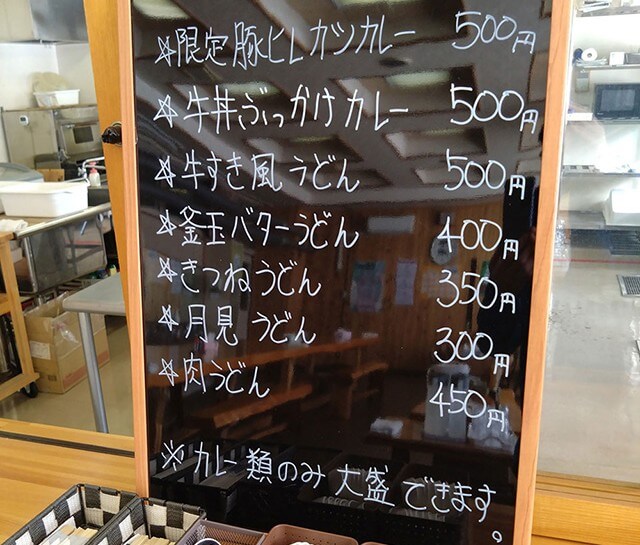 ☆限定豚ヒレカツカレー 500円
☆牛丼ぶっかけカレー 500円
☆牛すき風うどん 500円
☆釜玉バターうどん 400円
☆きつねうどん 350円
☆月見うどん 300円
☆肉うどん 450円
※カレー類のみ大盛できます。